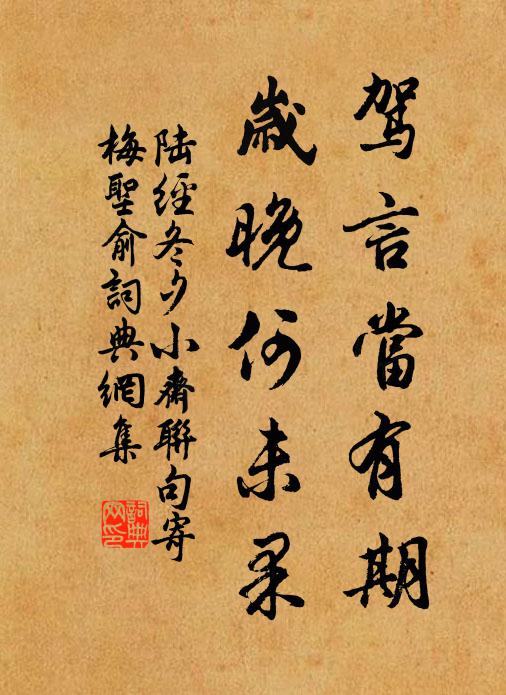 驾言當有期
歲晚何未果
陆經冬夕小齋聯句寄
梅聖俞詞典網集
詞典网印